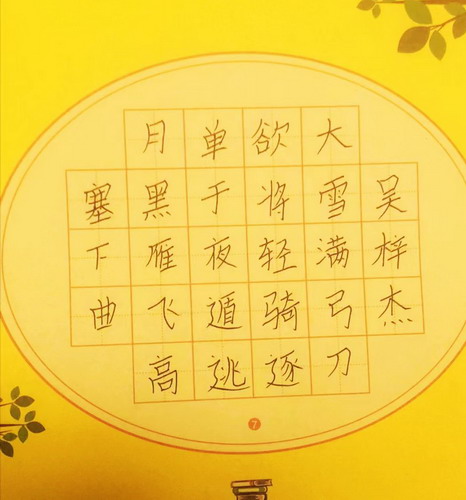 塞下曲
月黑雁飞高
单于夜遁逃
欲将轻骑逐
大雪满弓刀
吴梓杰
7